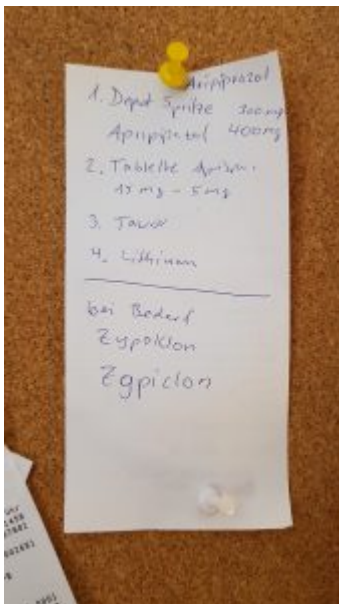 Aripiprazol
1. Depot Spritze 300mg
Apripiprazol 400mg
2. Tablette
15 mg - 5 mg
3. Tavor
4. Lithium
bei Bedarf
Zypoklon
Zgpiclon